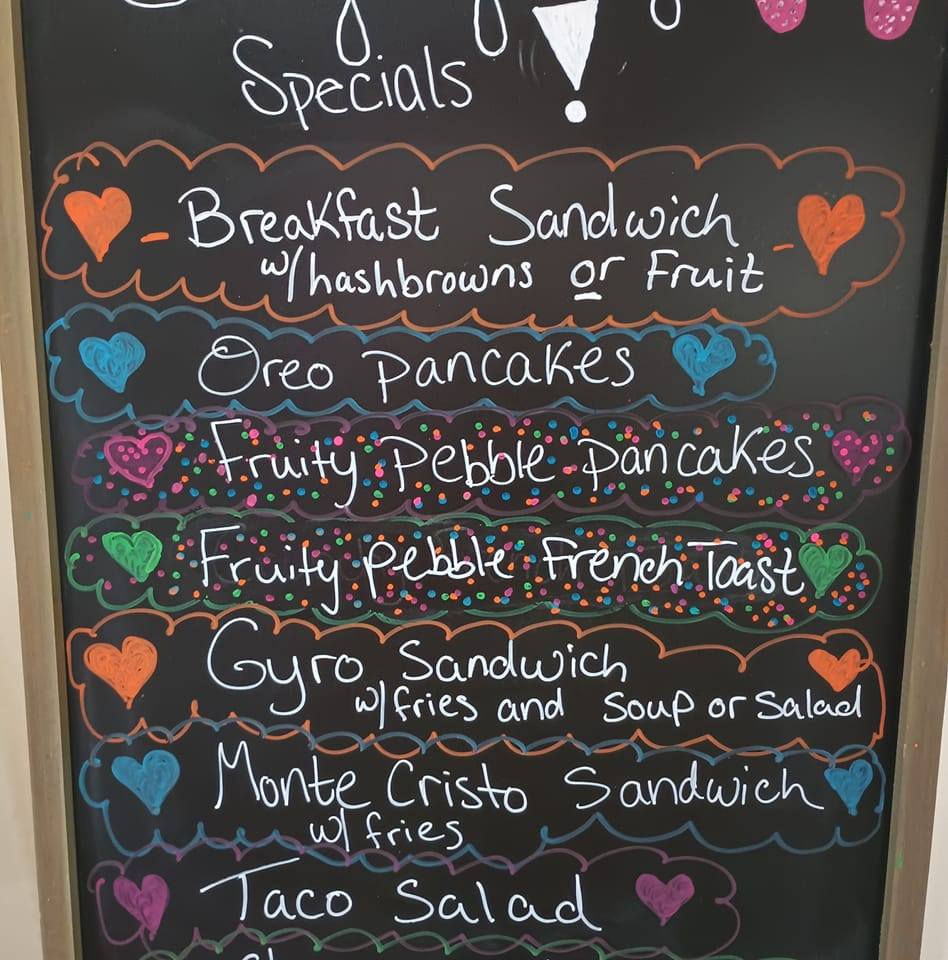 Specials
Breakfast Sandwich
w/hashbrowns or Fruit
Oreo pancakes
Fruity pebble pancakes
Fruity pebble French Toast
Gyro Sandwich
w/fries and Soup or Salad
Monte Cristo Sandwich
w/ fries
Taco Salad